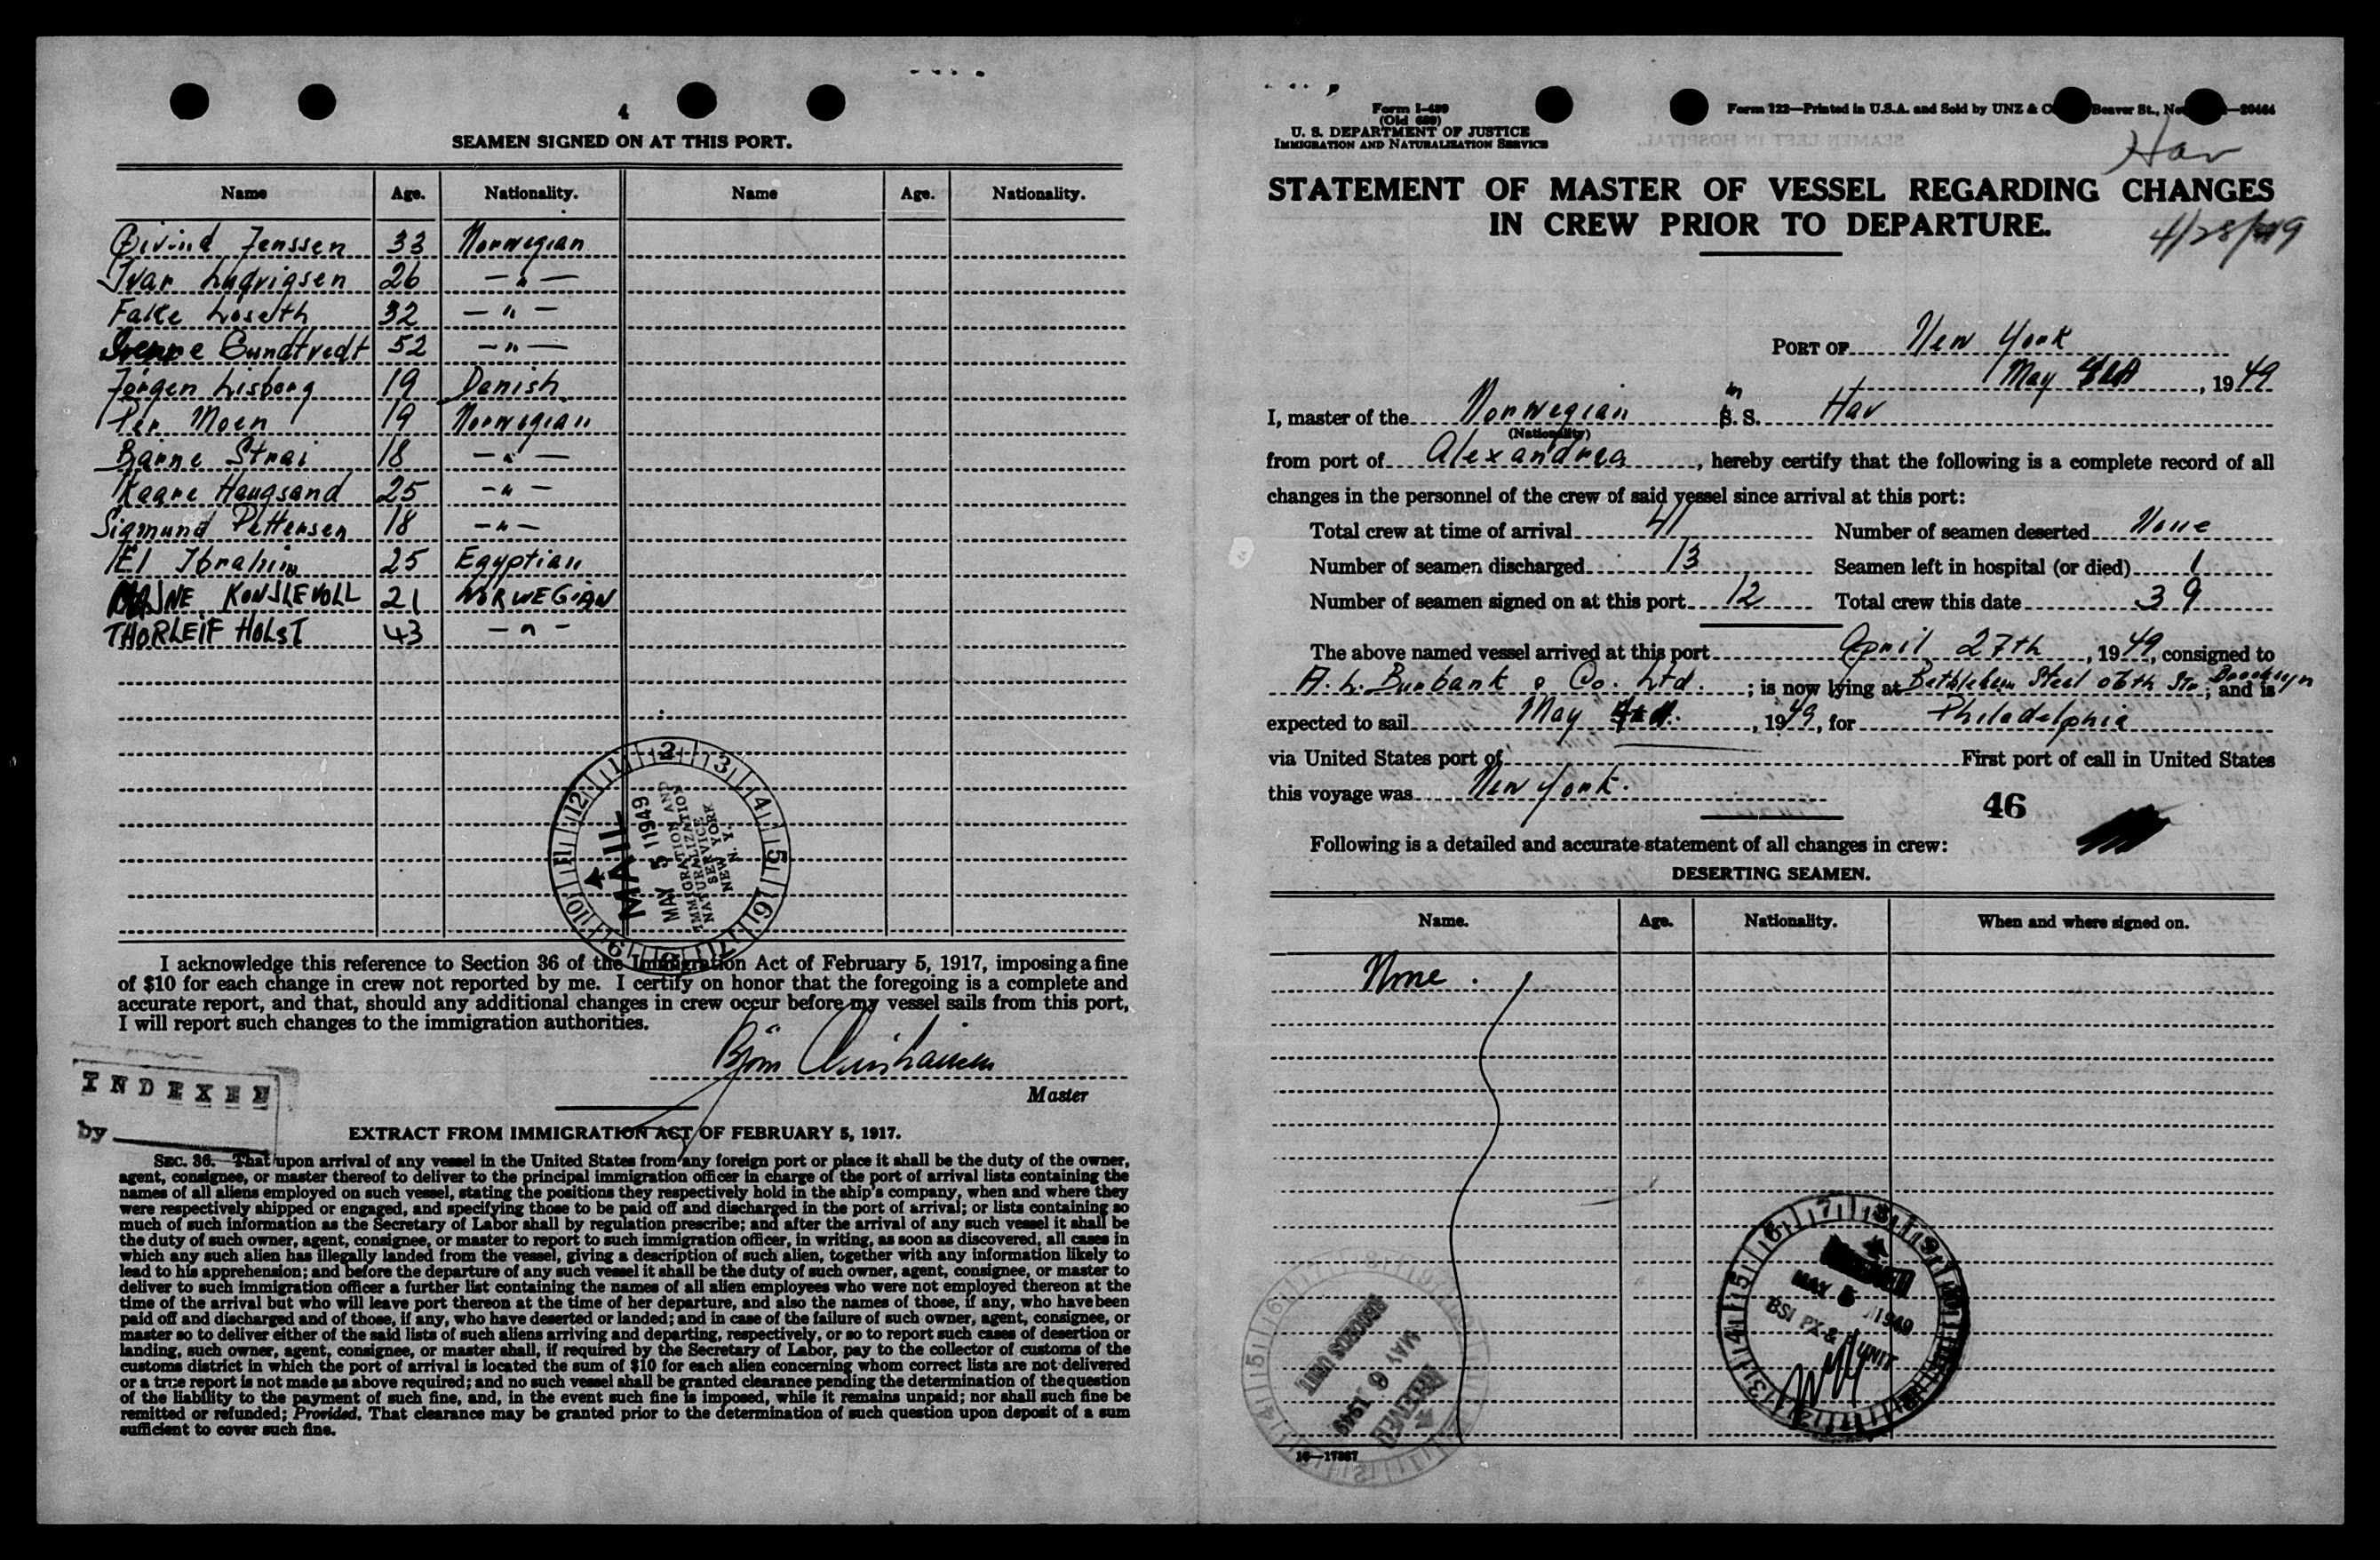 4
SEAMEN SIGNED ON AT THIS PORT.
Name Age. Nationality. Name Age. Nationality.
Øivind Jenssen 33 Norwegian
Ivar Ludvigsen 26 — " —
Falke Loseth 32 — " —
Gundtvedt 52 — " —
Jørgen Lisborg 19 Danish
Per Moen 19 Norwegian
Bjarne Strai 18 — " —
Kaare Haugsand 25 — " —
Sigmund Pettersen 18 — " —
El Ibrahim 25 Egyptian
KONSLEVOLL 21 NORWEGIAN
THORLEIF HOLST 43 — " —
MAIL
MAY 5 1949
IMMIGRATION AND
NATURALIZATION
SERVICE
NEW YORK
N. Y.
I acknowledge this reference to Section 36 of the Immigration Act of February 5, 1917, imposing a fine
of $10 for each change in crew not reported by me. I certify on honor that the foregoing is a complete and
accurate report, and that, should any additional changes in crew occur before my vessel sails from this port,
I will report such changes to the immigration authorities.
Bjørn
Master
INDEXED
by
EXTRACT FROM IMMIGRATION ACT OF FEBRUARY 5, 1917.
SEC. 36. That upon arrival of any vessel in the United States from any foreign port or place it shall be the duty of the owner,
agent, consignee, or master thereof to deliver to the principal immigration officer in charge of the port of arrival lists containing the
names of all aliens employed on such vessel, stating the positions they respectively hold in the ship's company, when and where they
were respectively shipped or engaged, and specifying those to be paid off and discharged in the port of arrival; or lists containing so
much of such information as the Secretary of Labor shall by regulation prescribe; and after the arrival of any such vessel it shall be
the duty of such owner, agent, consignee, or master to report to such immigration officer, in writing, as soon as discovered, all cases in
which any such alien has illegally landed from the vessel, giving a description of such alien, together with any information likely to
lead to his apprehension; and before the departure of any such vessel it shall be the duty of such owner, agent, consignee, or master to
deliver to such immigration officer a further list containing the names of all alien employees who were not employed thereon at the
time of the arrival but who will leave port thereon at the time of her departure, and also the names of those, if any, who have been
paid off and discharged and of those, if any, who have deserted or landed; and in case of the failure of such owner, agent, consignee, or
master so to deliver either of the said lists of such aliens arriving and departing, respectively, or so to report such cases of desertion or
landing, such owner, agent, consignee, or master shall, if required by the Secretary of Labor, pay to the collector of customs of the
customs district in which the port of arrival is located the sum of $10 for each alien concerning whom correct lists are not delivered
or a true report is not made as above required; and no such vessel shall be granted clearance pending the determination of the question
of the liability to the payment of such fine, and, in the event such fine is imposed, while it remains unpaid; nor shall such fine be
remitted or refunded; Provided, That clearance may be granted prior to the determination of such question upon deposit of a sum
sufficient to cover such fine.
Form I-489
(Old 689)
U. S. DEPARTMENT OF JUSTICE
IMMIGRATION AND NATURALIZATION SERVICE
Form 722—Printed in U.S.A. and Sold by UNZ & C Beaver St., Ne —20464
Hav
STATEMENT OF MASTER OF VESSEL REGARDING CHANGES
IN CREW PRIOR TO DEPARTURE.
4/28/49
PORT OF New York
May , 1949
I, master of the Norwegian S. S. Hav
(Nationality)
from port of Alexandria, hereby certify that the following is a complete record of all
changes in the personnel of the crew of said vessel since arrival at this port:
Total crew at time of arrival 41 Number of seamen deserted None
Number of seamen discharged 13 Seamen left in hospital (or died) 1
Number of seamen signed on at this port 12 Total crew this date 39
The above named vessel arrived at this port April 27th, 1949, consigned to
A. L. Burbank & Co. Ltd. ; is now lying at Bethlehem Steel 56th Str. Brooklyn; and is
expected to sail May , 1949, for Philadelphia
via United States port of First port of call in United States
this voyage was New York.
46
Following is a detailed and accurate statement of all changes in crew:
DESERTING SEAMEN.
Name. Age. Nationality. When and where signed on.
None.
RECEIVED
MAY 6 1949
RECORDS UNIT
MAY 5 1949
BSI PX & UNIT
16—17267